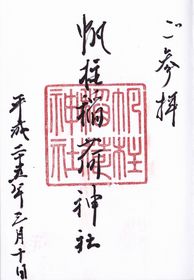 ご参拝
帆柱稲荷神社
帆柱稲荷神社
平成二十五年三月十日